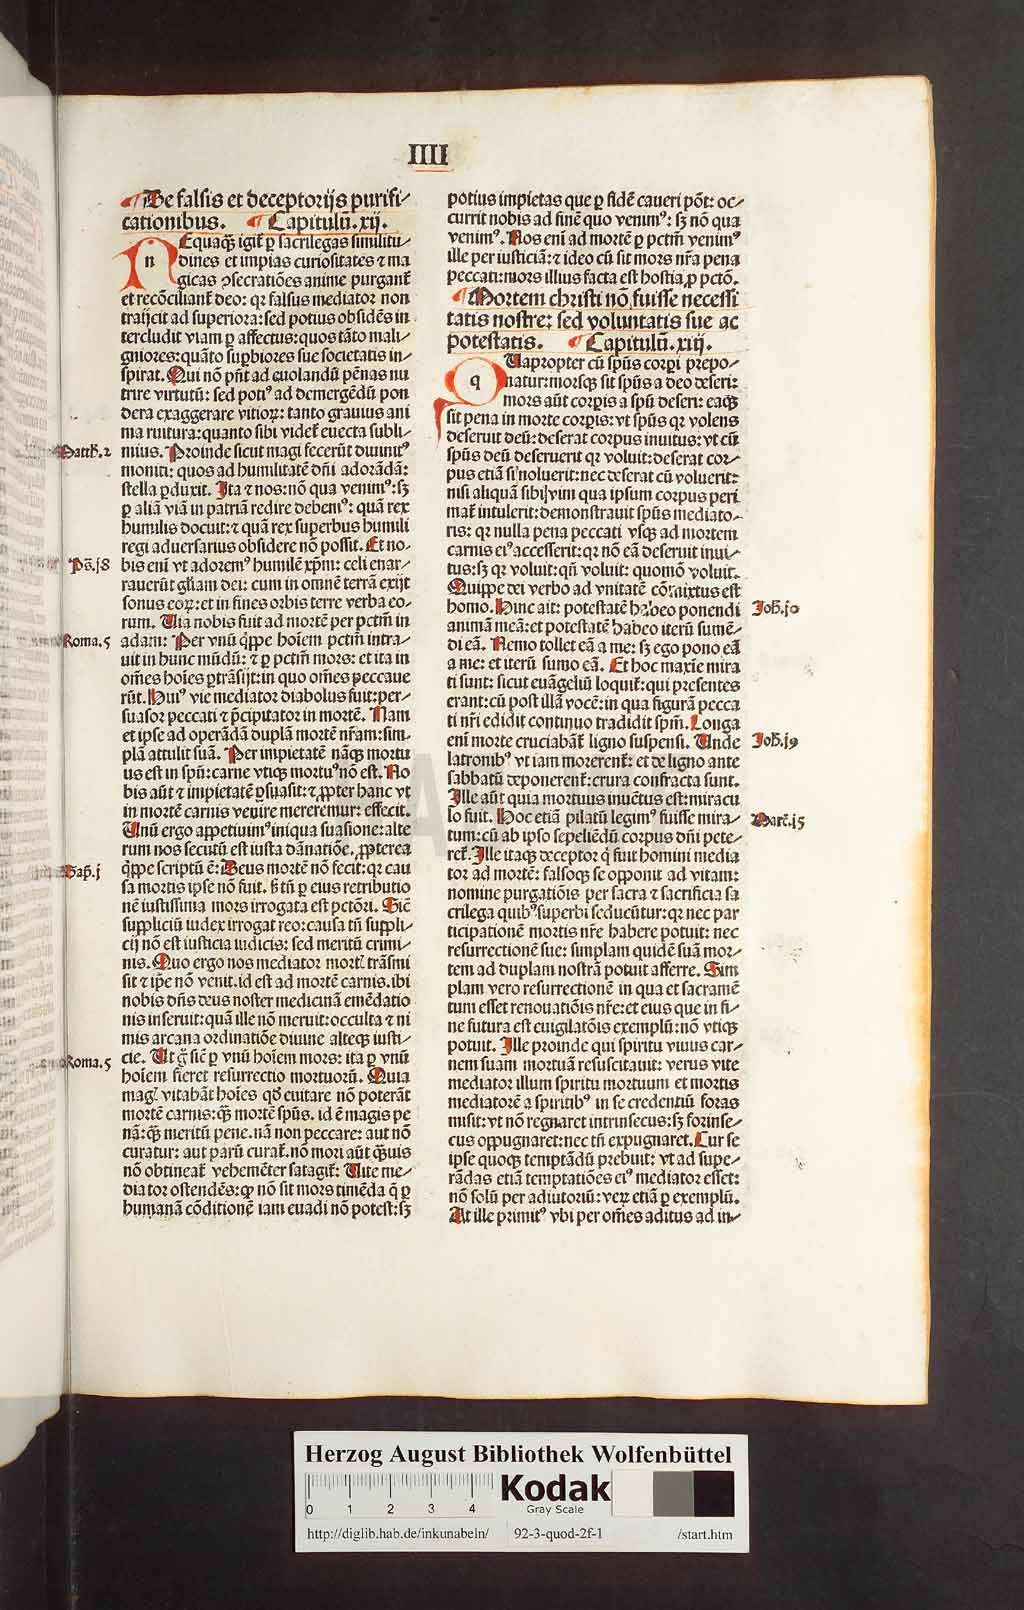 IIII
De falsis et deceptorijs purifi-
cationibus. Capitulū.xij.
NEquaq̄ȝ igit᷑ ꝑ sacrilegas similitu-
dines et impias curiositates ⁊ ma
gicas ꝯsecratiōes anime purgant᷑
et recōciliant᷑ deo: qꝛ falsus mediator non
traijcit ad superiora: sed potius obsidēs in
tercludit viam ꝑ affectus: quos tāto mali-
gniores: quāto suꝑbiores sue societatis in-
spirat. Qui nō pn̄t ad euolandū pēnas nu
trire virtutū: sed potiꝰ ad demergēdū pon
dera exaggerare vitioꝝ: tanto grauius ani
ma ruitura: quanto sibi videt᷑ euecta subli-
Matth̄.2 mius. Proinde sicut magi fecerūt diuinitꝰ
moniti: quos ad humilitatē dn̄i adorādā:
stella ꝑduxit. Ita ⁊ nos: nō qua venimꝰ: sȝ
ꝑ aliā viā in patriā redire debemꝰ: quā rex
humilis docuit: ⁊ quā rex superbus humili
regi aduersarius obsidere nō possit. Et no-
Ps̄.j8 bis enī vt adoremꝰ humilē xp̄m: celi enar-
rauerūt gl̄iam dei: cum in omnē terrā exijt
sonus eoꝝ: et in fines orbis terre verba eo-
rum. Uia nobis fuit ad mortē per pctm̄ in
Roma.5 adam: Per vnū q̄ppe hoīem pctm̄ intra-
uit in hunc mūdū: ⁊ ꝑ pctm̄ mors: et ita in
om̄es hoīes ꝑtrāsijt: in quo om̄es peccaue
rūt. Huiꝰ vie mediator diabolus fuit: per-
suasor peccati ⁊ p̄cipitator in mortē. Nam
et ipse ad operādā duplā mortē nr̄am: sim-
plā attulit suā. Per impietatē nāqȝ mortu
us est in spū: carne vtiqȝ mortuꝰ nō est. No
bis aūt ⁊ impietatē ꝑsuasit: ⁊ ꝓpter hanc vt
in mortē carnis venire mereremur: effecit.
Unū ergo appetiuimꝰ iniqua suasione: alte
rum nos secutū est iusta dānatiōe. ꝓpterea
Sap̄.j q̄ppe scriptū ē: Deus mortē nō fecit: qꝛ cau
sa mortis ipse nō fuit. sȝ tn̄ ꝑ eius retributio
nē iustissima mors irrogata est pctōri. Sic̄
suppliciū iudex irrogat reo: causa tn̄ suppli-
cij nō est iusticia iudicis: sed meritū crimi-
nis. Quo ergo nos mediator mortꝭ trāsmi
sit ⁊ ip̄e nō venit. id est ad mortē carnis. ibi
nobis dn̄s deus noster medicinā emēdatio
nis inseruit: quā ille nō meruit: occulta ⁊ ni
mis arcana ordinatiōe diuine alteqȝ iusti-
Roma.5 cie. Ut g̊ sic̄ ꝑ vnū hoīem mors: ita ꝑ vnū
hoīem fieret resurrectio mortuorū. Quia
magꝭ vitabāt hoīes qd̄ euitare nō poterāt
mortē carnis: q̄ȝ mortē spūs. id ē magis pe
nā: q̄ȝ meritū pene. nā non peccare: aut nō
curatur: aut parū curat᷑. nō mori aūt q̄ȝuis
nō obtineat᷑ vehemēter satagit᷑: Uite me-
diator ostendēs: ꝙ nō sit mors timēda q̄ ꝑ
humanā cōditionē iam euadi nō potest: sȝ
potius impietas que ꝑ fidē caueri pōt: oc-
currit nobis ad finē quo venimꝰ: sȝ nō qua
venimꝰ. Nos enī ad mortē ꝑ pctm̄ venimꝰ
ille per iusticiā: ⁊ ideo cū sit mors nr̄a pena
peccati: mors illius facta est hostia ꝓ pctō.
Mortem christi nō fuisse necessi
tatis nostre: sed voluntatis sue ac
potestatis. Capitulū.xiij.
QUapropter cū spūs corpi prepo-
natur: morsqȝ sit spūs a deo deseri:
mors aūt corpis a spū deseri: eaqȝ
sit pena in morte corpis: vt spūs qꝛ volens
deseruit deū: deserat corpus inuitus: vt cū
spūs deū deseruerit qꝛ voluit: deserat cor-
pus etiā si noluerit: nec deserat cū voluerit:
nisi aliquā sibi vim qua ipsum corpus peri
mat᷑ intulerit: demonstrauit spūs mediato-
ris: qꝛ nulla pena peccati vsqȝ ad mortem
carnis eiꝰ accesserit: qꝛ nō eā deseruit inui-
tus: sȝ qꝛ voluit: qn̄ voluit: quomō voluit.
Quippe dei verbo ad vnitatē cōmixtus est
homo. Hinc ait: potestatē habeo ponendi Joh̄.j0
animā meā: et potestatē habeo iterū sumē-
di eā. Nemo tollet eā a me: sȝ ego pono eā
a me: et iterū sumo eā. Et hoc maxīe mira
ti sunt: sicut euāgeliū loquit᷑: qui presentes
erant: cū post illā vocē: in qua figurā pecca
ti nr̄i edidit continuo tradidit spm̄. Longa
enī morte cruciabāt᷑ ligno suspensi. Unde Joh̄.j9
latronibꝰ vt iam morerent᷑: et de ligno ante
sabbatū deponerent᷑: crura confracta sunt.
Ille aūt quia mortuus inuētus est: miracu
lo fuit. Hoc etiā pilatū legimꝰ fuisse mira- Marc̄.j5
tum: cū ab ipso sepeliēdū corpus dn̄i pete-
ret᷑. Ille itaqȝ deceptor q̄ fuit homini media
tor ad mortē: falsoqȝ se opponit ad vitam:
nomine purgatiōis per sacra ⁊ sacrificia sa
crilega quibꝰ superbi seducūtur: qꝛ nec par
ticipationē mortis nr̄e habere potuit: nec
resurrectionē sue: simplam quidē suā mor-
tem ad duplam nostrā potuit afferre. Sim
plam vero resurrectionē in qua et sacramē
tum esset renouatiōis nr̄e: et eius que in fi-
ne futura est euigilatōis exemplū: nō vtiqȝ
potuit. Ille proinde qui spiritu viuus car-
nem suam mortuā resuscitauit: verus vite
mediator illum spiritu mortuum et mortis
mediatorē a spiritibꝰ in se credentiū foras
misit: vt nō regnaret intrinsecus: sȝ forinse-
cus oppugnaret: nec tn̄ expugnaret. Cur se
ipse quoqȝ temptādū prebuit: vt ad supe-
rādas etiā temptatiōes eiꝰ mediator esset:
nō solū per adiutoriū: veꝝ etiā ꝑ exemplū.
At ille primitꝰ vbi per om̄es aditus ad in-
Herzog August Bibliothek Wolfenbüttel
0 1 2 3 4
Kodak
Gray Scale
http://diglib.hab.de/inkunabeln/ 92-3-quod-2f-1 /start.htm